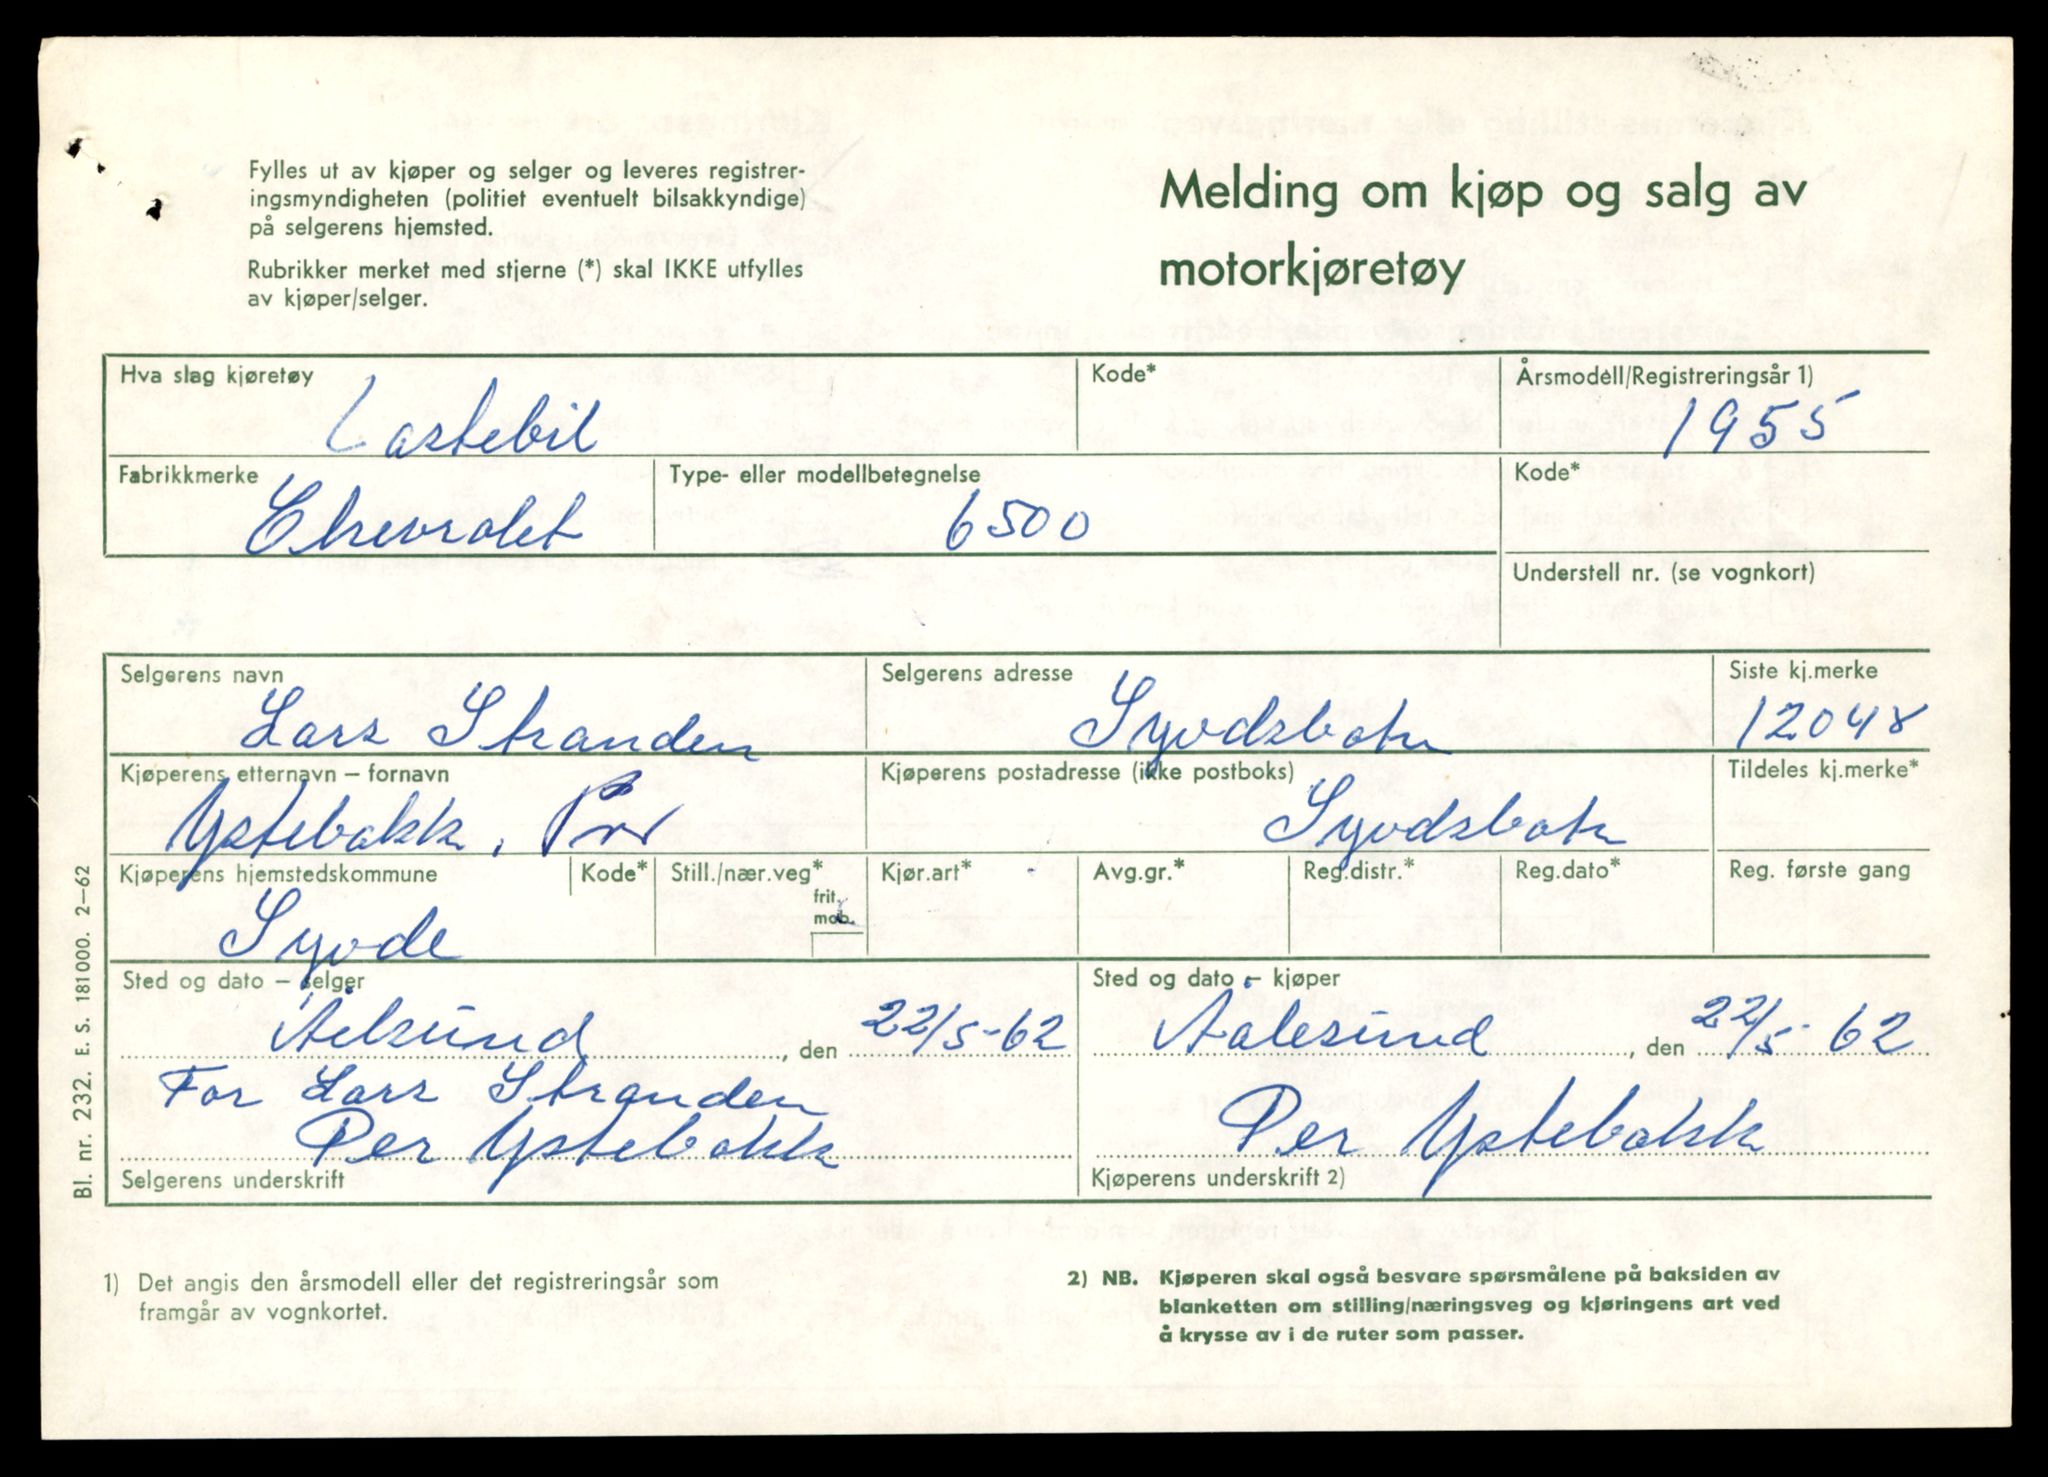 Fylles ut av kjøper og selger og leveres registrer-
ingsmyndigheten (politiet eventuelt bilsakkyndige)
på selgerens hjemsted.
Rubrikker merket med stjerne (*) skal IKKE utfylles
av kjøper/selger.
Melding om kjøp og salg av
motorkjøretøy
Hva slag kjøretøy
Lastebil
Kode*
Årsmodell/Registreringsår 1)
1955
Fabrikkmerke
Chevrolet
Type- eller modellbetegnelse
6500
Kode*
Understell nr. (se vognkort)
Selgerens navn
Lars Stranden
Selgerens adresse
Syvdsbotn
Siste kj.merke
12048
Kjøperens etternavn – fornavn
Ystebakk, Per
Kjøperens postadresse (ikke postboks)
Syvdsbotn
Tildeles kj.merke*
Kjøperens hjemstedskommune
Syvde
Kode*
Still./nær.veg*
frit.
mob.
Kjør.art*
Avg.gr.*
Reg.distr.*
Reg.dato*
Reg. første gang
Sted og dato – selger
Ålesund, den 22/5-62
For Lars Stranden
Per Ystebakk
Selgerens underskrift
Sted og dato – kjøper
Aalesund, den 22/5-62
Per Ystebakk
Kjøperens underskrift 2)
Bl. nr. 232. E. S. 181000. 2–62
1) Det angis den årsmodell eller det registreringsår som
framgår av vognkortet.
2) NB. Kjøperen skal også besvare spørsmålene på baksiden av
blanketten om stilling/næringsveg og kjøringens art ved
å krysse av i de ruter som passer.